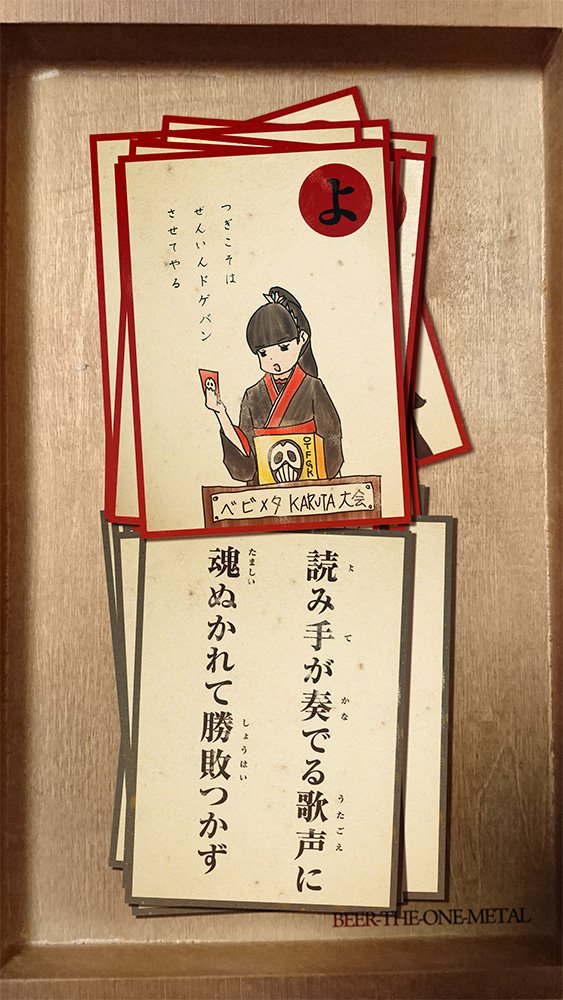 よ
つぎこそは
ぜんいんドゲバン
させてやる
OTFGK
ベビメタ KARUTA 大会
読み手が奏でる歌声に
よ
て
かな
うたごえ
魂ぬかれて勝敗つかず
たましい
しょうはい
BEER-THE-ONE-METAL